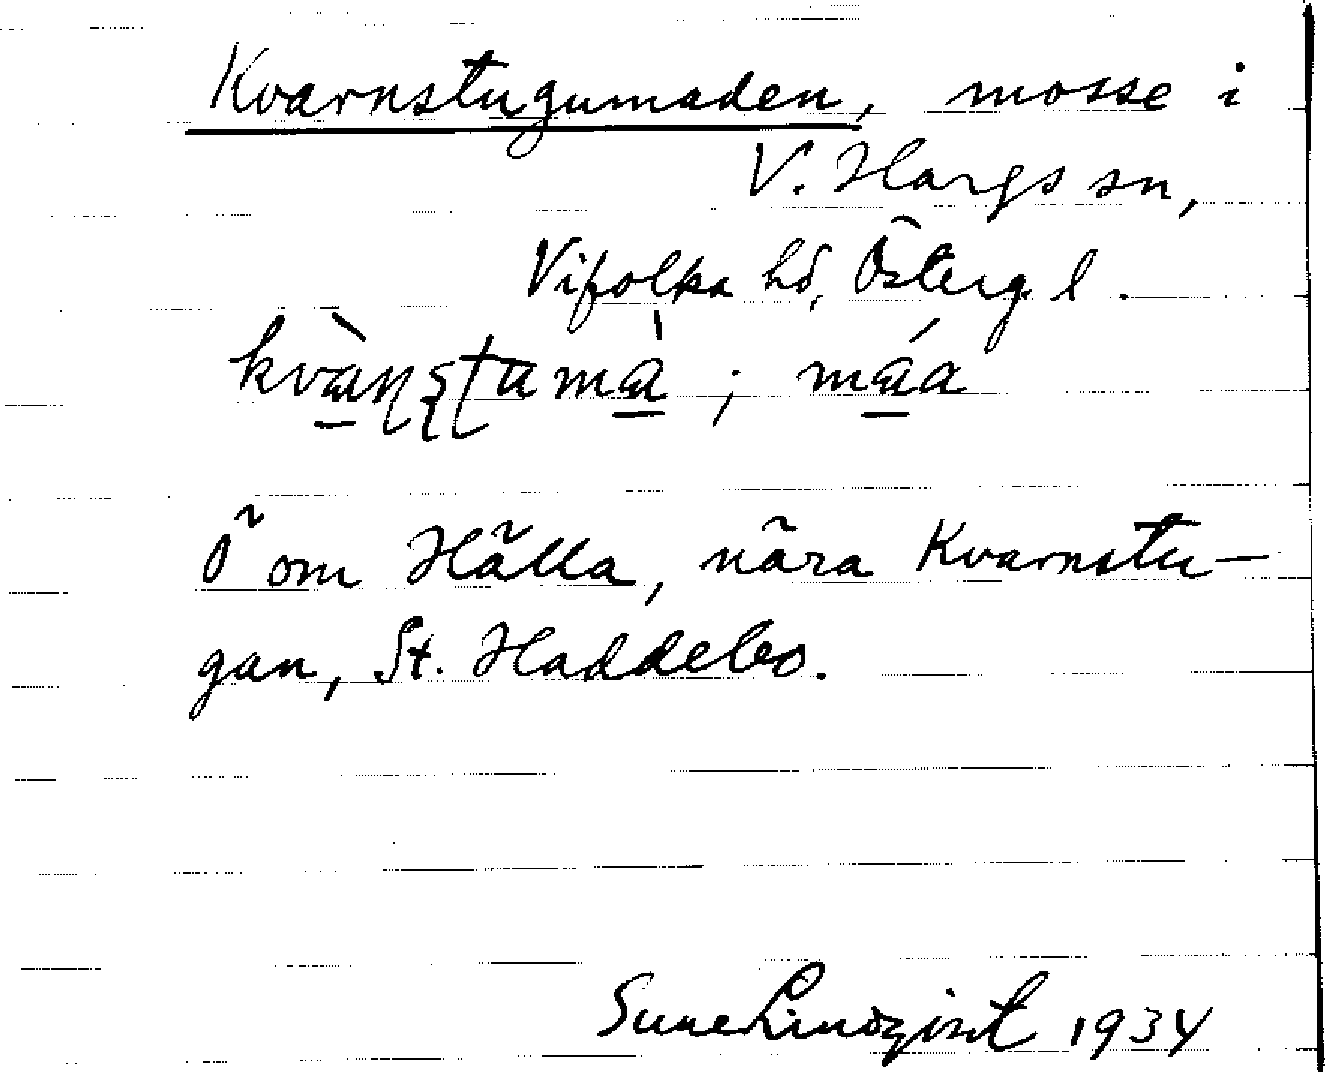 Kvarnstugumaden, mosse i
V. Hargs sn,
Vifolka hd, Östergl.
kvàṉʂʈamà̱; má̱a
Ö om Hälla, nära Kvarnstu-
gan, St. Haddebo.
Sune Lindqvist 1934